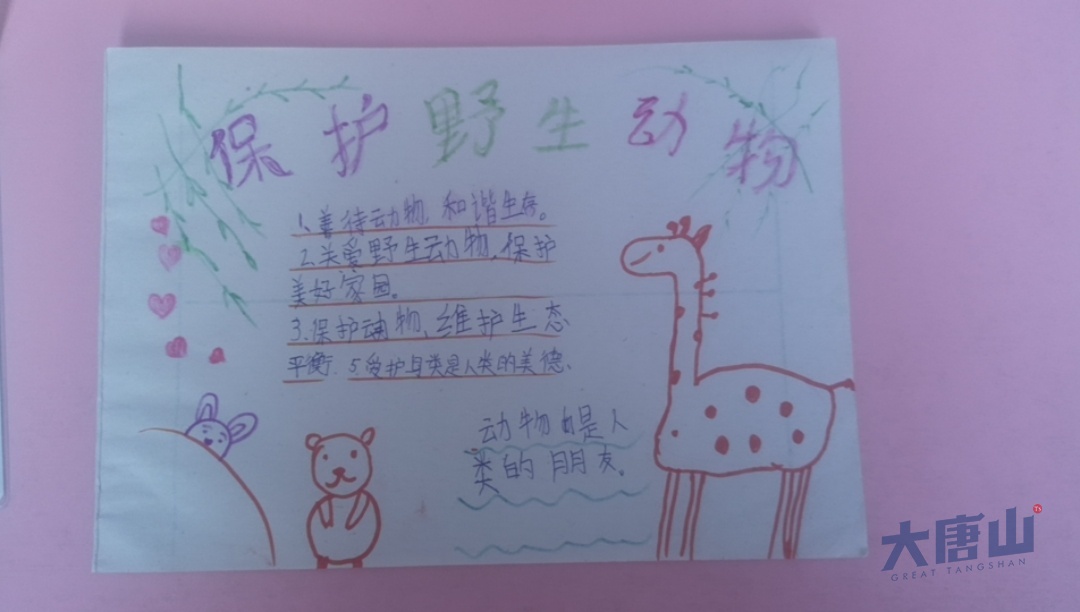 保护野生动物
1、善待动物、和谐生存。
2.关爱野生动物、保护
美好家园。
3.保护动物、维护生态
平衡. 5.爱护鸟类是人类的美德、
动物也是人
类的朋友。
大唐山
GREAT TANGSHAN